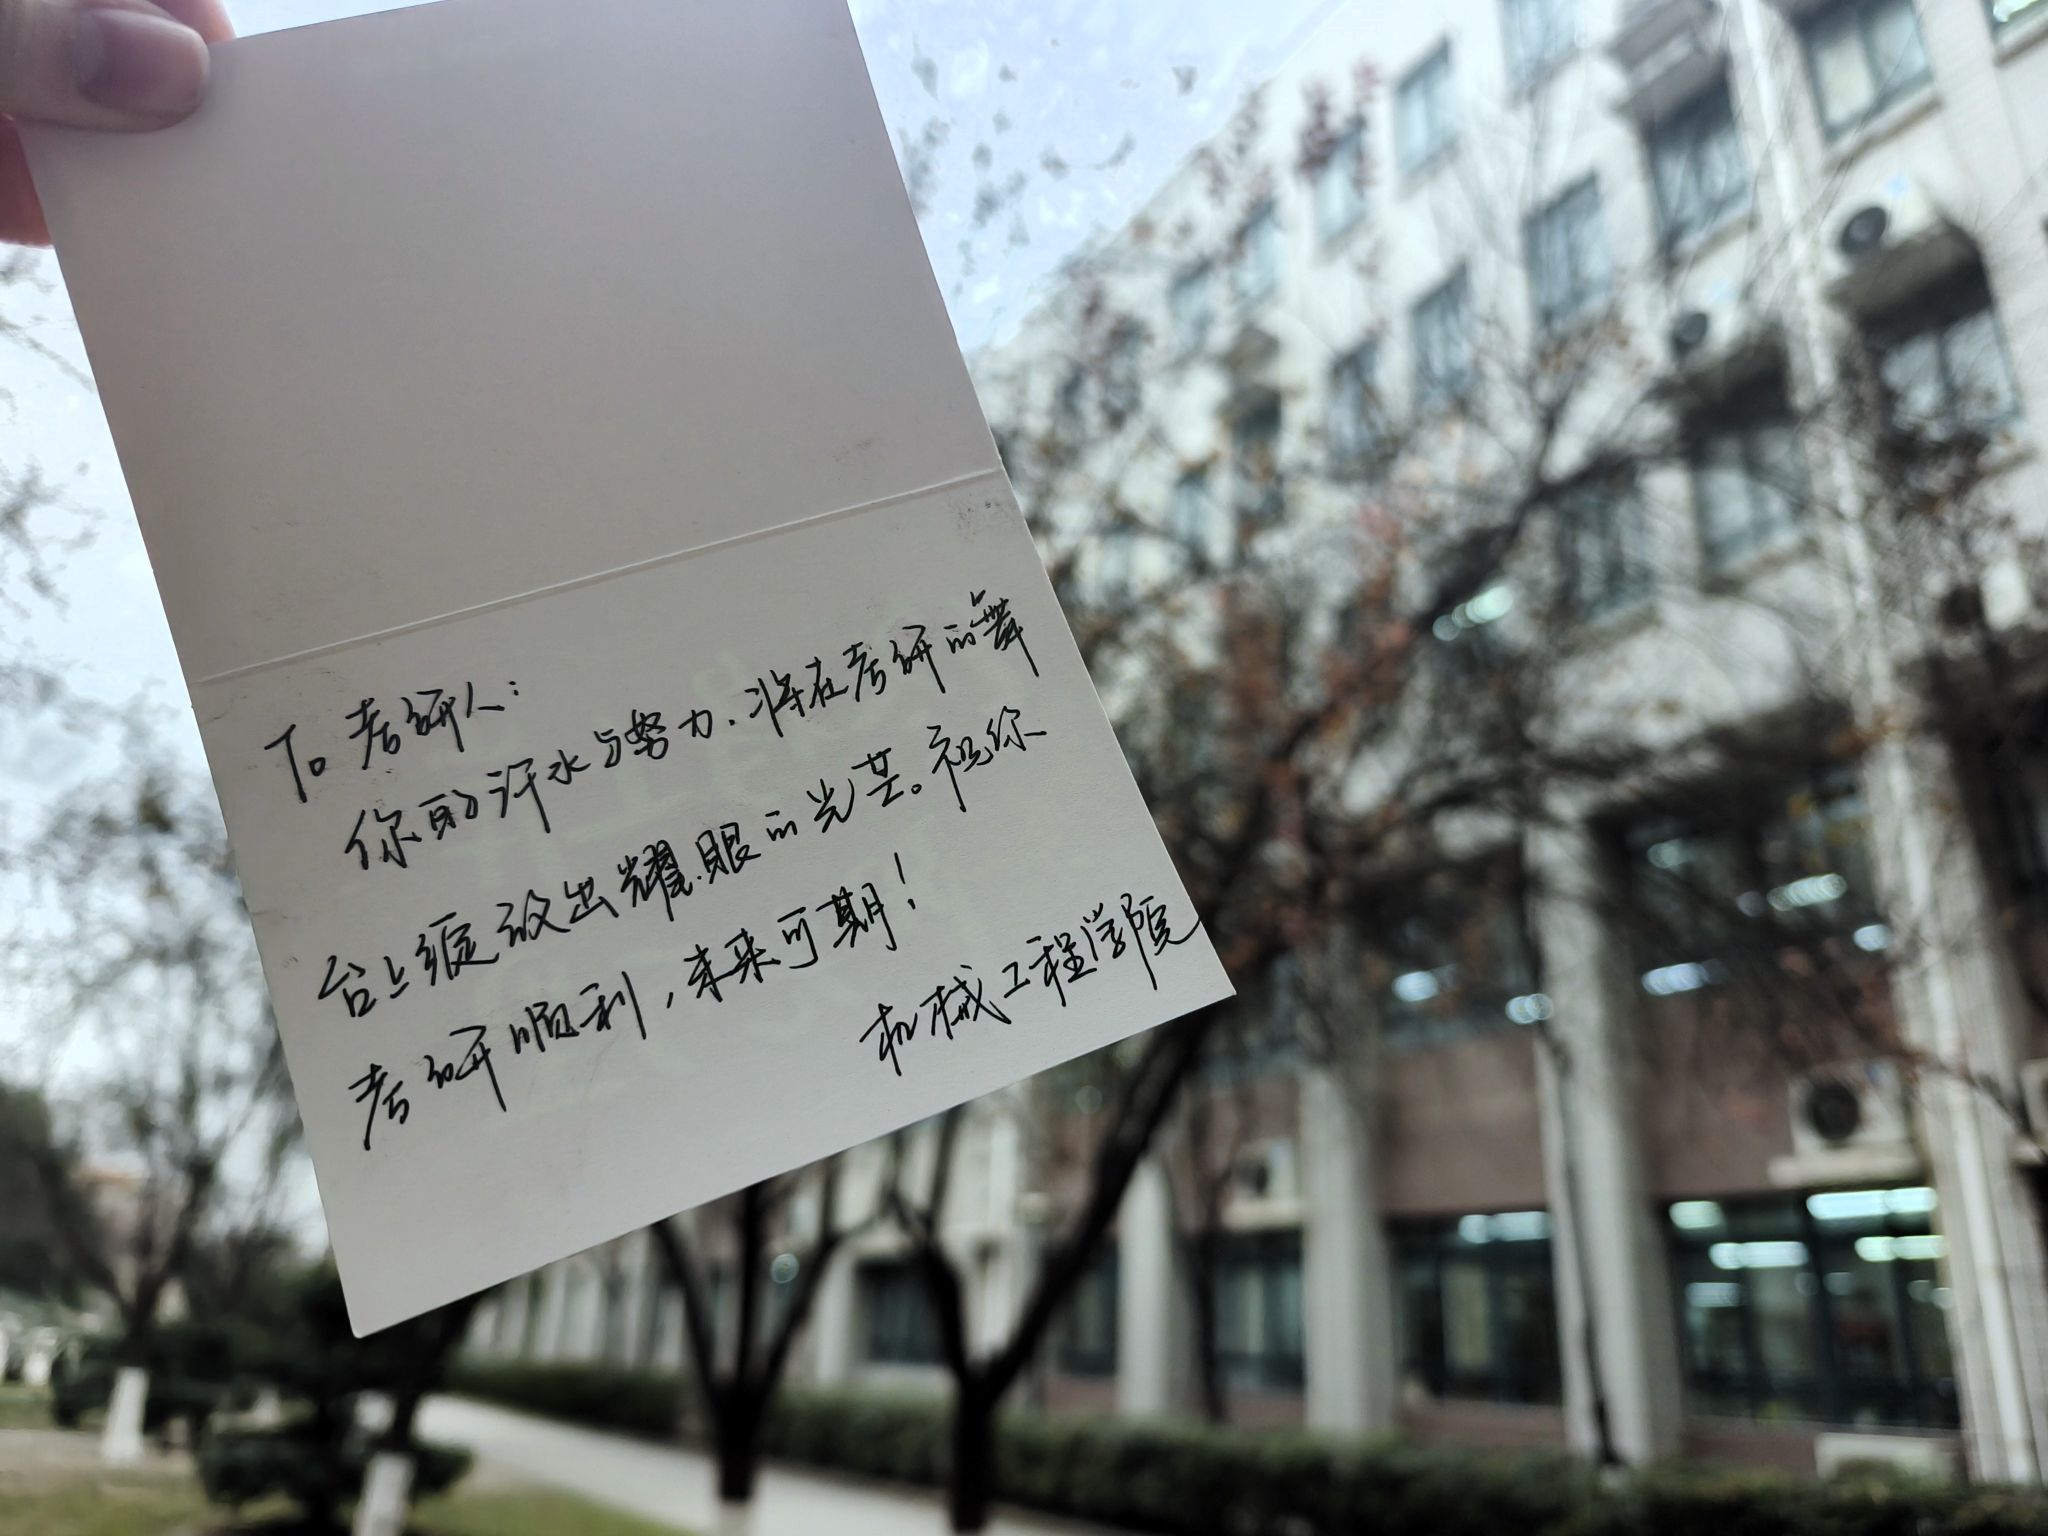 To 考研人：
你的汗水与努力，将在考研的舞
台上绽放出耀眼的光芒。祝你
考研顺利，未来可期！
机械工程学院